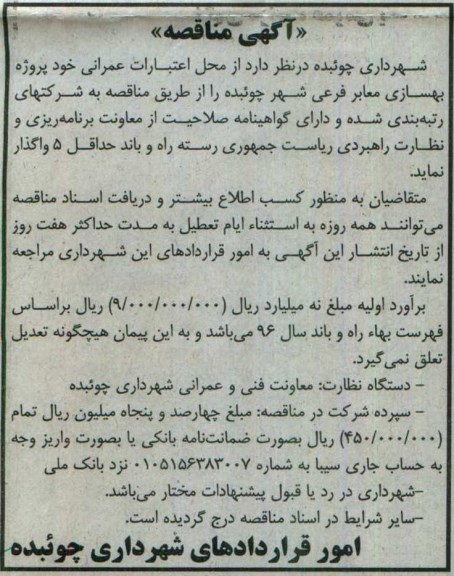 «آگهی مناقصه»
شهرداری چوئبده درنظر دارد از محل اعتبارات عمرانی خود پروژه
بهسازی معابر فرعی شهر چوئبده را از طریق مناقصه به شرکتهای
رتبه‌بندی شده و دارای گواهینامه صلاحیت از معاونت برنامه‌ریزی و
نظارت راهبردی ریاست جمهوری رسته راه و باند حداقل ۵ واگذار
نماید.
متقاضیان به منظور کسب اطلاع بیشتر و دریافت اسناد مناقصه
می‌توانند همه روزه به استثناء ایام تعطیل به مدت حداکثر هفت روز
از تاریخ انتشار این آگهی به امور قراردادهای این شهرداری مراجعه
نمایند.
برآورد اولیه مبلغ نه میلیارد ریال (۹/۰۰۰/۰۰۰/۰۰۰) ریال براساس
فهرست بهاء راه و باند سال ۹۶ می‌باشد و به این پیمان هیچگونه تعدیل
تعلق نمی‌گیرد.
- دستگاه نظارت: معاونت فنی و عمرانی شهرداری چوئبده
- سپرده شرکت در مناقصه: مبلغ چهارصد و پنجاه میلیون ریال تمام
(۴۵۰/۰۰۰/۰۰۰) ریال بصورت ضمانت‌نامه بانکی یا بصورت واریز وجه
به حساب جاری سیبا به شماره ۰۱۰۵۱۵۶۳۸۳۰۰۷ نزد بانک ملی
-شهرداری در رد یا قبول پیشنهادات مختار می‌باشد.
-سایر شرایط در اسناد مناقصه درج گردیده است.
امور قراردادهای شهرداری چوئبده